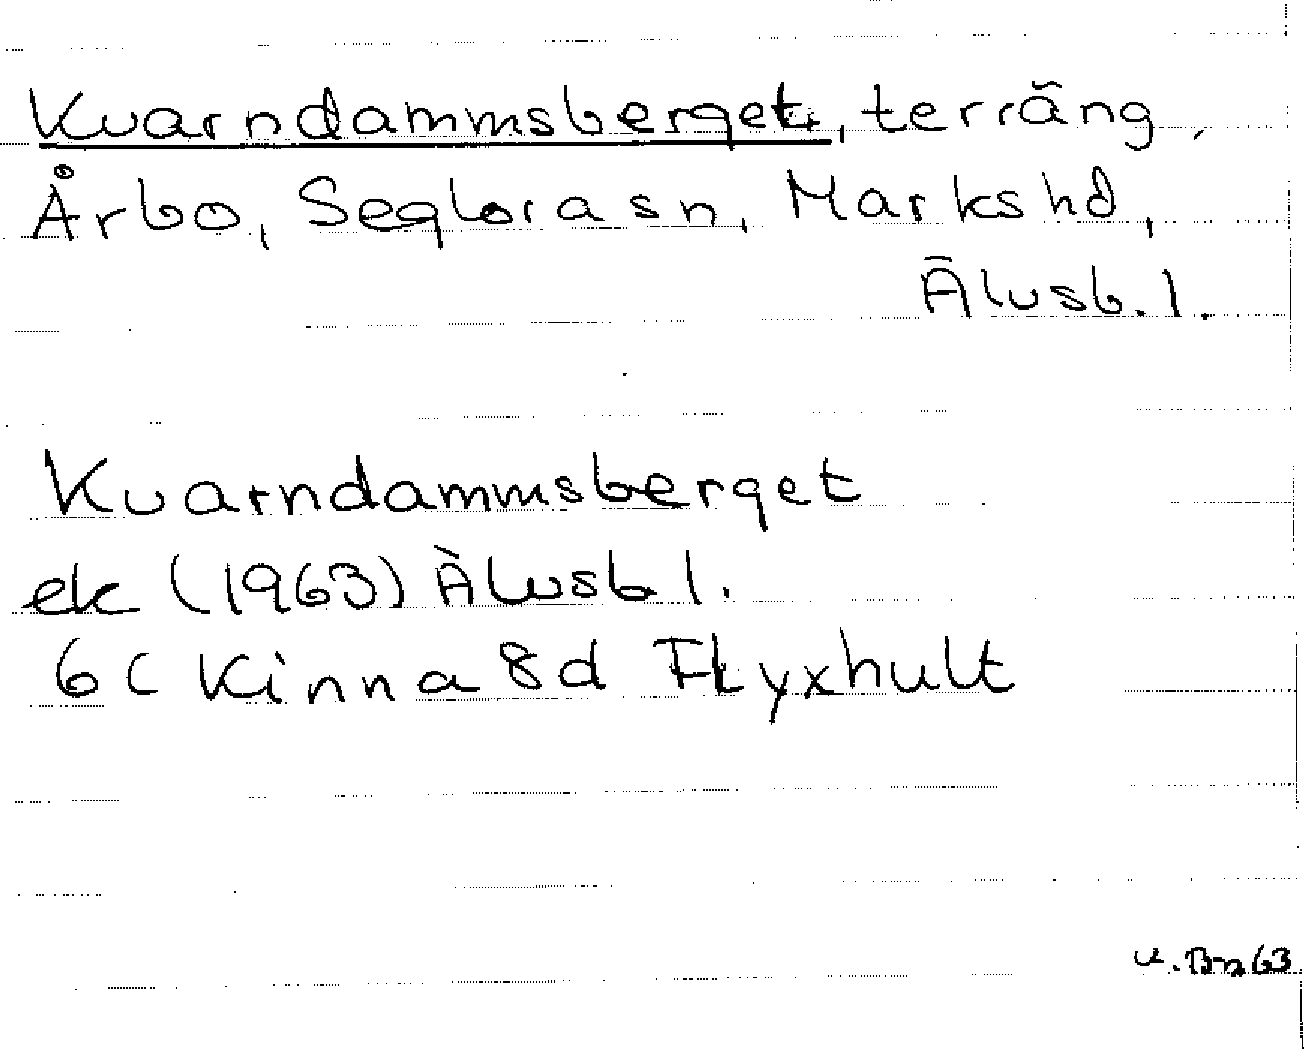 Kvarndammsberget, terräng,
Årbo, Seglora sn, Marks hd,
Älvsb. l.
Kvarndammsberget
ek (1963) Älvsb l.
6C Kinna 8d Flyxhult